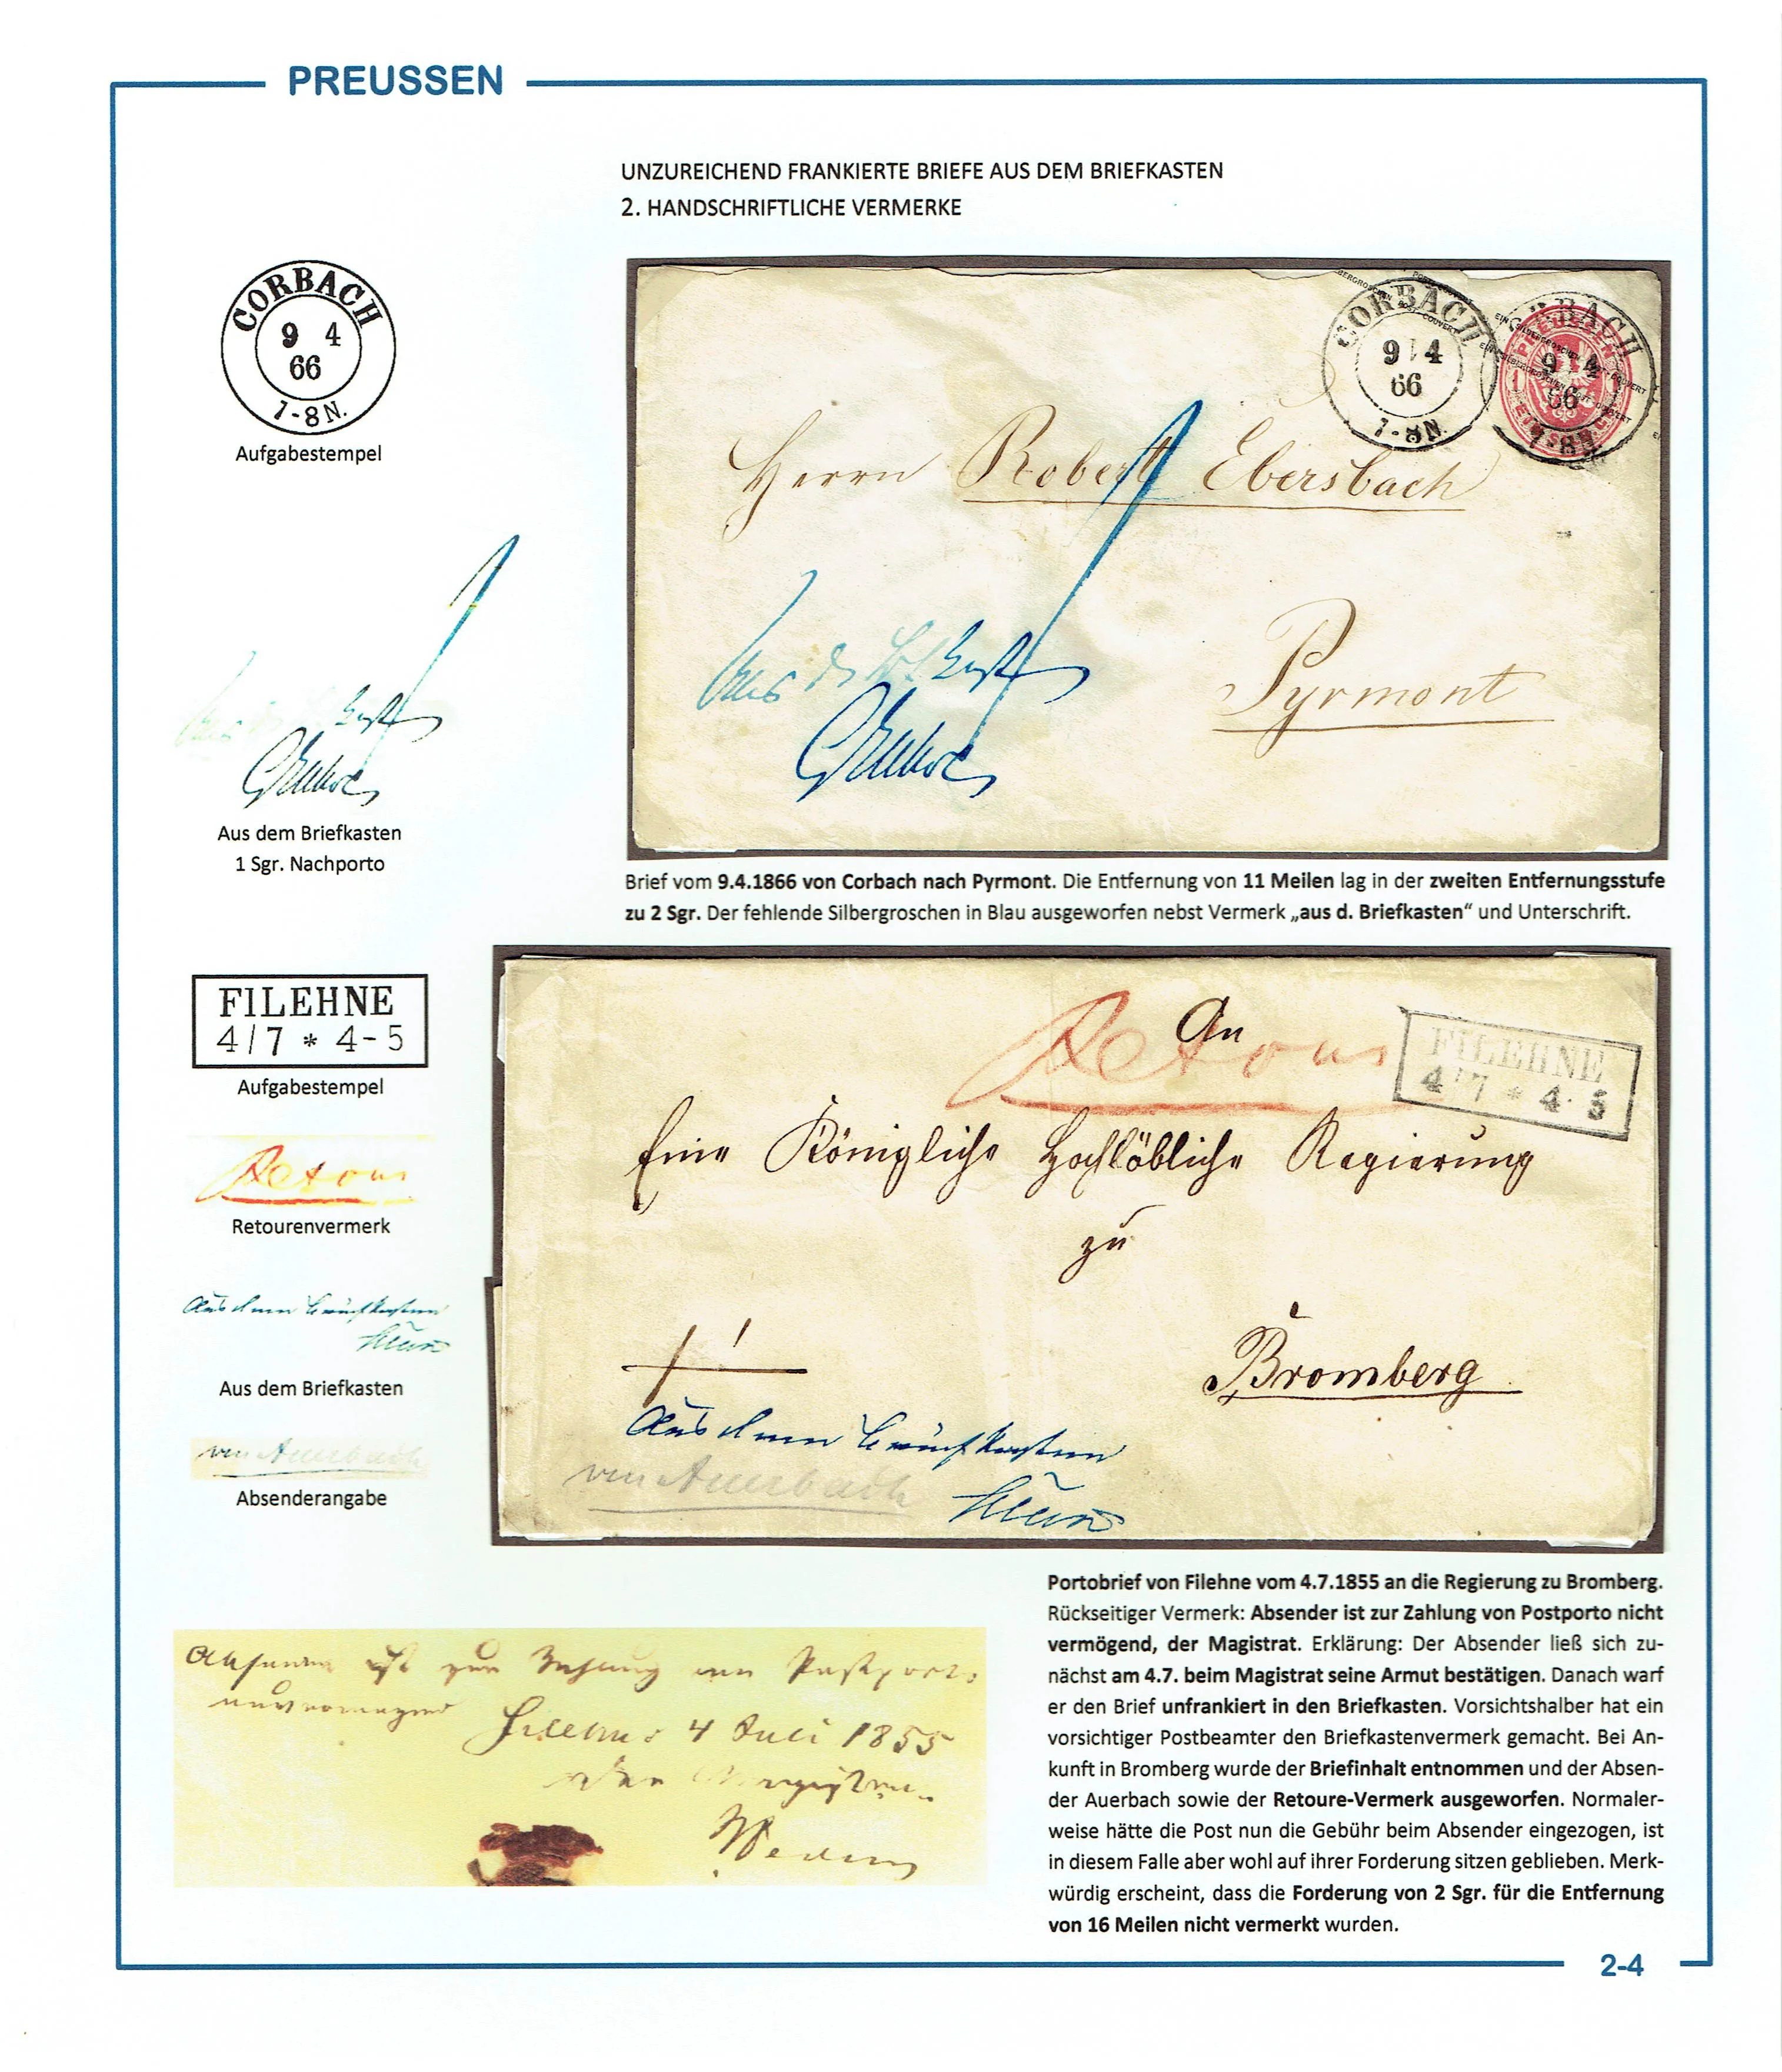 PREUSSEN
UNZUREICHEND FRANKIERTE BRIEFE AUS DEM BRIEFKASTEN
2. HANDSCHRIFTLICHE VERMERKE
CORBACH
9 4
66
7-8N.
Aufgabestempel
Aus dem Briefkasten
1 Sgr. Nachporto
CORBACH
9 4
66
7-8N.
CORBACH
9 4
66
7-8N.
Herrn Robert Ebersbach
Pyrmont
Aus d. Kast
1
Brief vom 9.4.1866 von Corbach nach Pyrmont. Die Entfernung von 11 Meilen lag in der zweiten Entfernungsstufe
zu 2 Sgr. Der fehlende Silbergroschen in Blau ausgeworfen nebst Vermerk „aus d. Briefkasten“ und Unterschrift.
FILEHNE
4/7 * 4-5
Aufgabestempel
Retour
Retourenvermerk
Aus dem Briefkasten
Aus dem Briefkasten
von Auerbach
Absenderangabe
An
Retour
FILEHNE
4/7 * 4-5
Eine Königliche Hochlöbliche Regierung
zu
Bromberg
Aus dem Briefkasten
von Auerbach
Absender ist zur Zahlung von Postporto
unvermögend
Filehne 4 Juli 1855
Der Magistrat
Portobrief von Filehne vom 4.7.1855 an die Regierung zu Bromberg.
Rückseitiger Vermerk: Absender ist zur Zahlung von Postporto nicht
vermögend, der Magistrat. Erklärung: Der Absender ließ sich zu-
nächst am 4.7. beim Magistrat seine Armut bestätigen. Danach warf
er den Brief unfrankiert in den Briefkasten. Vorsichtshalber hat ein
vorsichtiger Postbeamter den Briefkastenvermerk gemacht. Bei An-
kunft in Bromberg wurde der Briefinhalt entnommen und der Absen-
der Auerbach sowie der Retoure-Vermerk ausgeworfen. Normaler-
weise hätte die Post nun die Gebühr beim Absender eingezogen, ist
in diesem Falle aber wohl auf ihrer Forderung sitzen geblieben. Merk-
würdig erscheint, dass die Forderung von 2 Sgr. für die Entfernung
von 16 Meilen nicht vermerkt wurden.
2-4